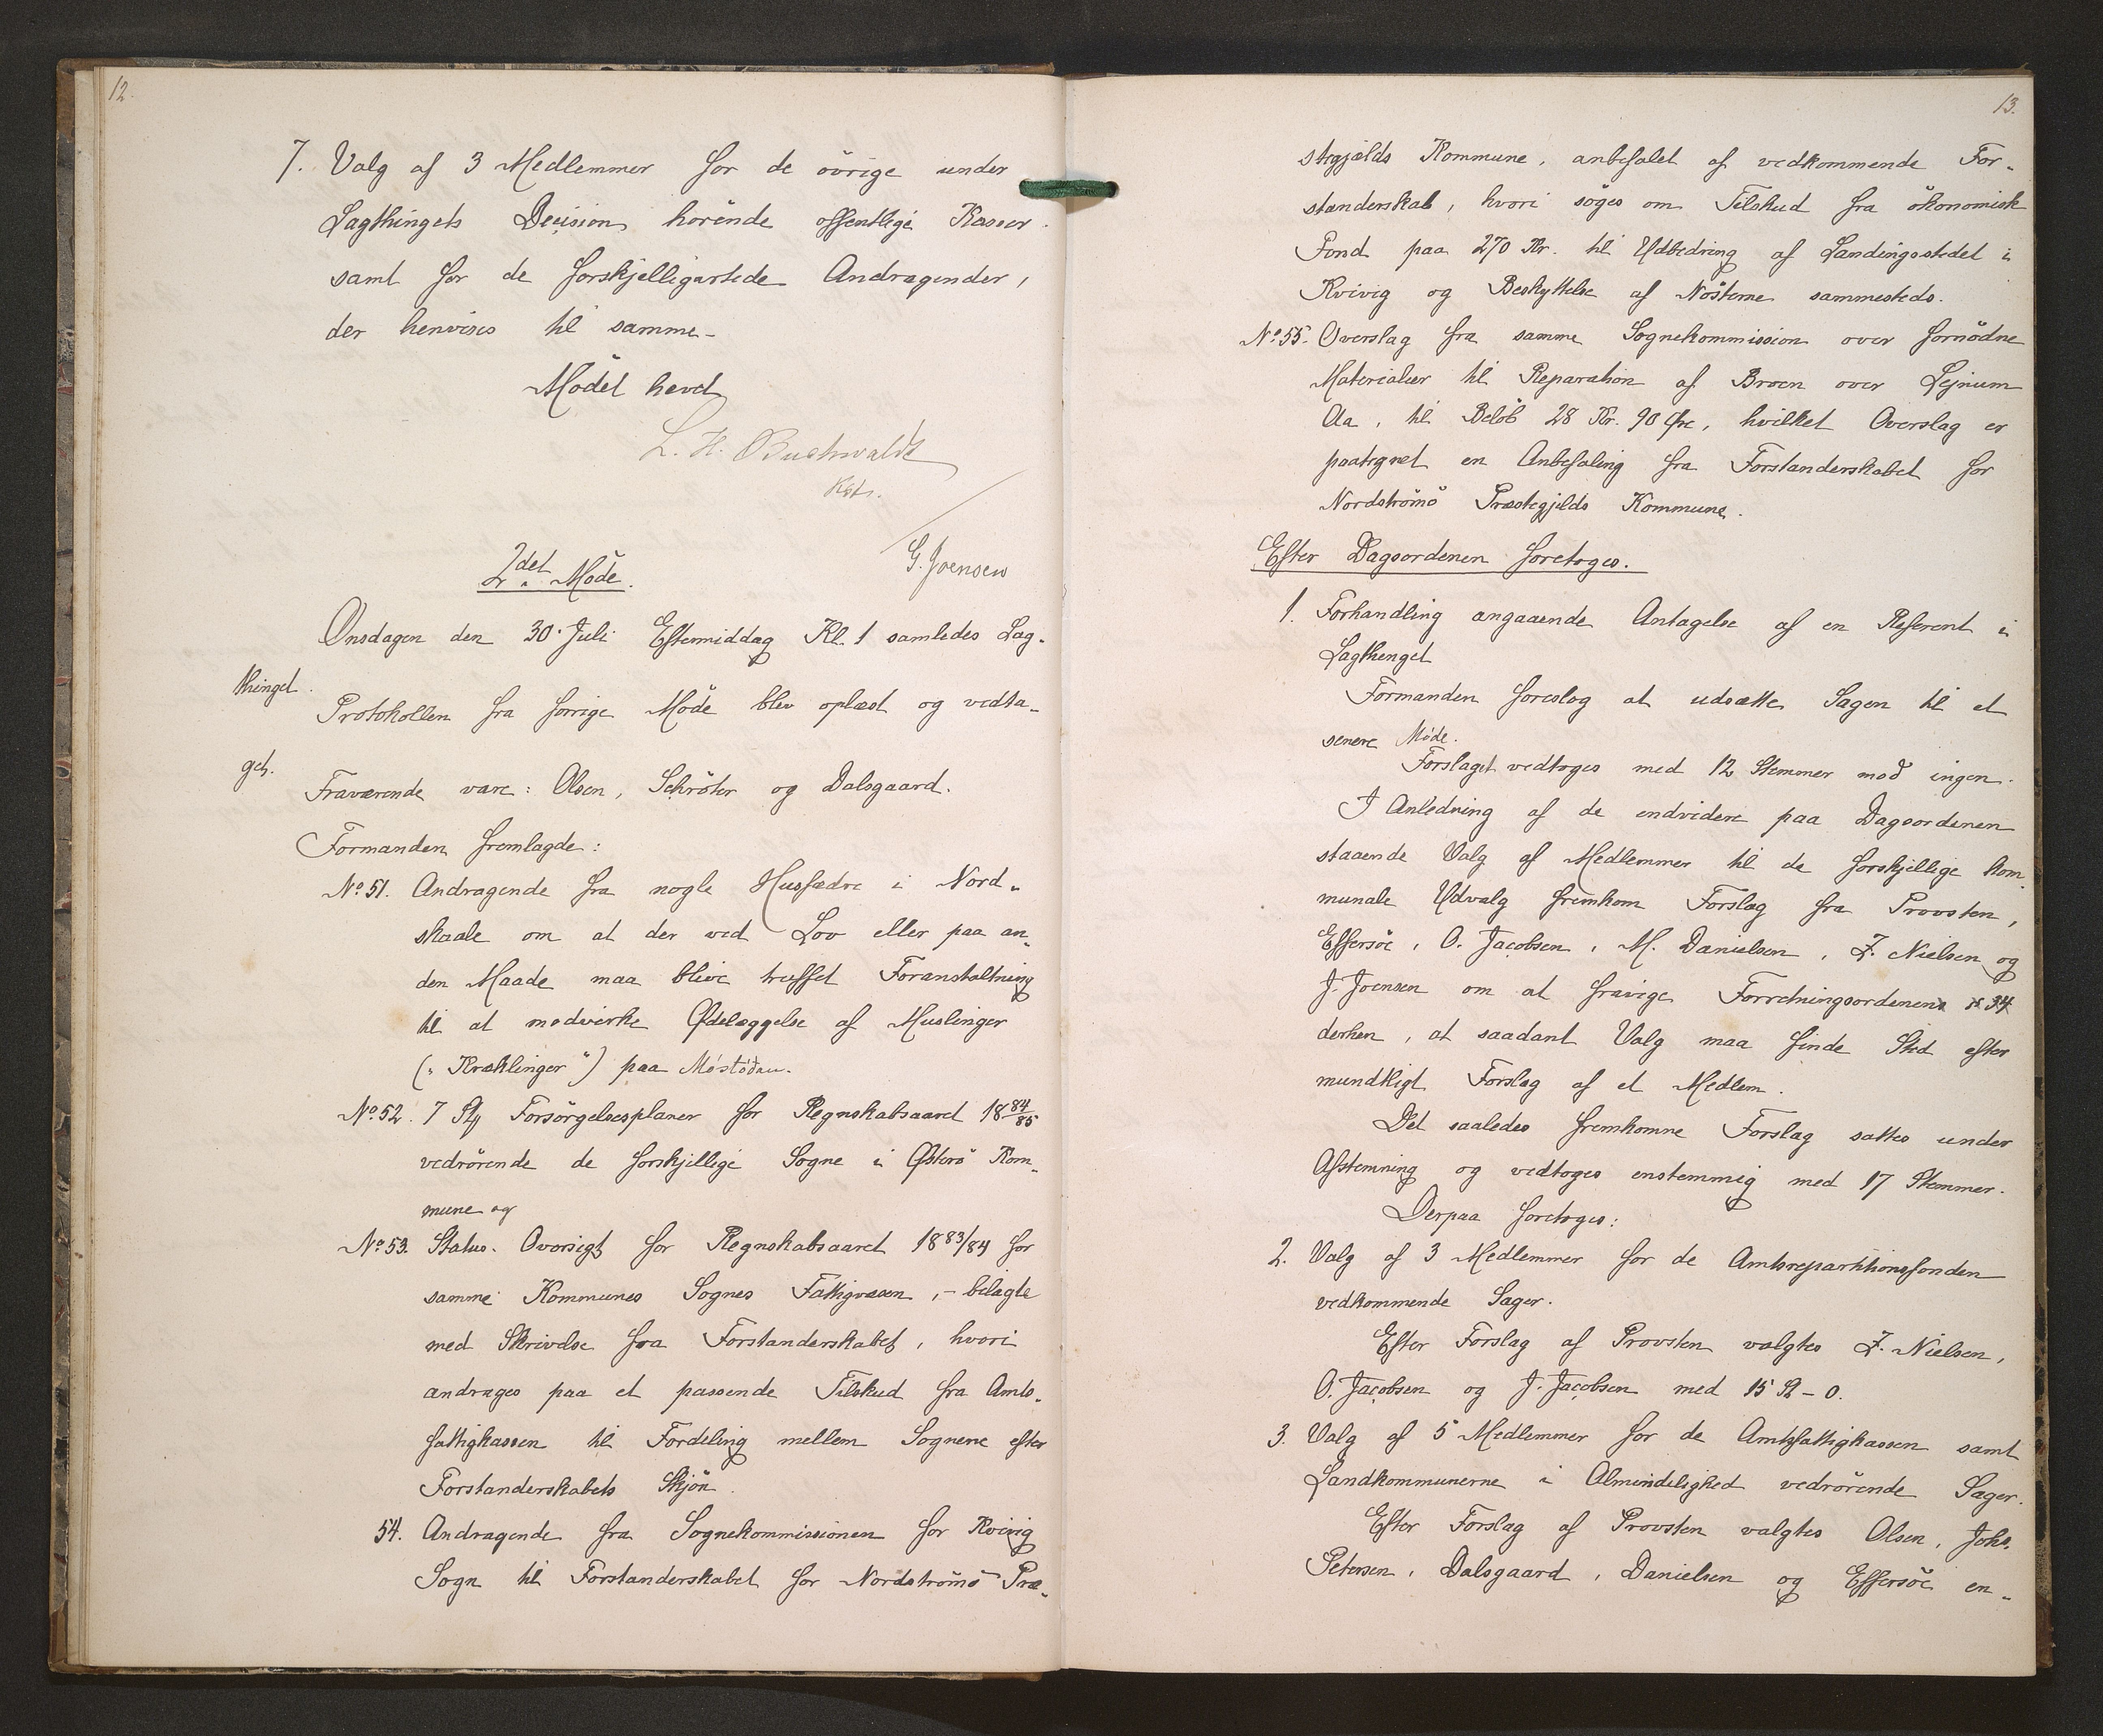 12.
7. Valg af 3 Medlemmer for de övrige under
Lagthingets Decision hörende offentlige Kasser
samt for de forskjelligartede Andragender,
der henvises til samme.
Mödet hevet
L. H. Buchwaldt
Kst.
G. Joensen
2det Möde.
Onsdagen den 30. Juli Eftermiddag Kl. 1 samledes Lag-
thinget.
Protokollen fra forrige Möde blev oplæst og vedta-
get.
Fraværende vare: Olsen, Schröter og Dalsgaard.
Formanden fremlagde:
No. 51. Andragende fra nogle Husfædre i Nord-
skaale om at der ved Lov eller paa an-
den Maade maa blive truffet Foranstaltning
til at modvirke Ødelæggelse af Muslinger
(„Kræklinger“) paa
No. 52. 7 Stk Forsörgelsesplaner for Regnskabsaaret 1884/85
vedrörende de forskjellige Sogne i Østerö Kom-
mune og
No. 53. Status-Oversigt for Regnskabsaaret 1883/84 for
samme Kommunes Sognes Fattigvæsen, - bilagte
med Skrivelse fra Forstanderskabet, hvori
andrages paa et passende Tilskud fra Amts-
fattigkassen til Fordeling mellem Sognene efter
Forstanderskabets Skjön.
54. Andragende fra Sognekommissionen for Kvivig
Sogn til Forstanderskabet for Nordströmö Præ-
13.
stegjælds Kommune, anbefalet af vedkommende For-
standerskab, hvori söges om Tilskud fra ökonomisk
Fond paa 270 Kr. til Udbedring af Landingsstedet i
Kvivig og Beskyttelse af Nösterne sammesteds.
No. 55. Overslag fra samme Sognekommission over fornödne
Materialier til Reparation af Broen over Lejnum
Aa, til Belöb 28 Kr. 90 Øre, hvilket Overslag er
paategnet en Anbefaling fra Forstanderskabet for
Nordströmö Præstegjelds Kommune.
Efter Dagsordenen foretoges.
1. Forhandling angaaende Antagelse af en Referent i
Lagthinget
Formanden foreslog at udsætte Sagen til et
senere Möde.
Forslaget vedtoges med 12 Stemmer mod ingen.
I Anledning af de endvidere paa Dagsordenen
staaende Valg af Medlemmer til de forskjellige kom-
munale Udvalg fremkom Forslag fra Provsten,
Effersöe, O. Jacobsen, M. Danielsen, Z. Nielsen og
J. Joensen om at fravige Forretningsordenens § 34
derhen, at saadant Valg maa finde Sted efter
mundtligt Forslag af et Medlem.
Det saaledes fremkomne Forslag sattes under
Afstemning og vedtoges enstemmig med 17 Stemmer.
Derpaa foretoges:
2. Valg af 3 Medlemmer for de Amtsrepartitionsfonden
vedkommende Sager.
Efter Forslag af Provsten valgtes Z. Nielsen,
O. Jacobsen og J. Jacobsen med 15 St - 0.
3. Valg af 5 Medlemmer for de Amtsfattigkassen samt
Landkommunerne i Almindelighed vedrörende Sager.
Efter Forslag af Provsten valgtes Olsen, Johs.
Petersen, Dalsgaard, Danielsen og Effersöe en-